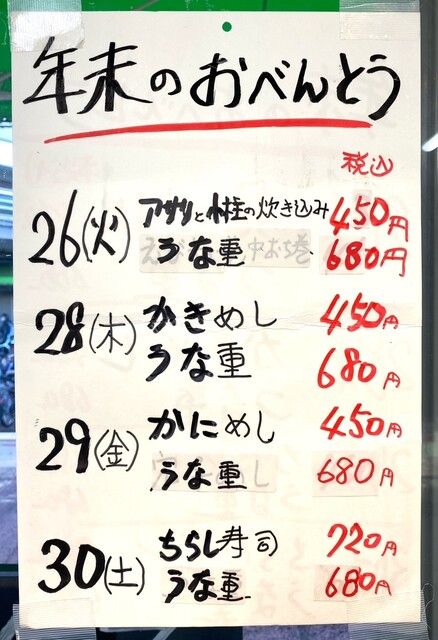 年末のおべんとう
税込
26(火) アサリと小柱の炊き込み 450円
うな重 680円
28(木) かきめし 450円
うな重 680円
29(金) かにめし 450円
うな重 680円
30(土) ちらし寿司 720円
うな重 680円